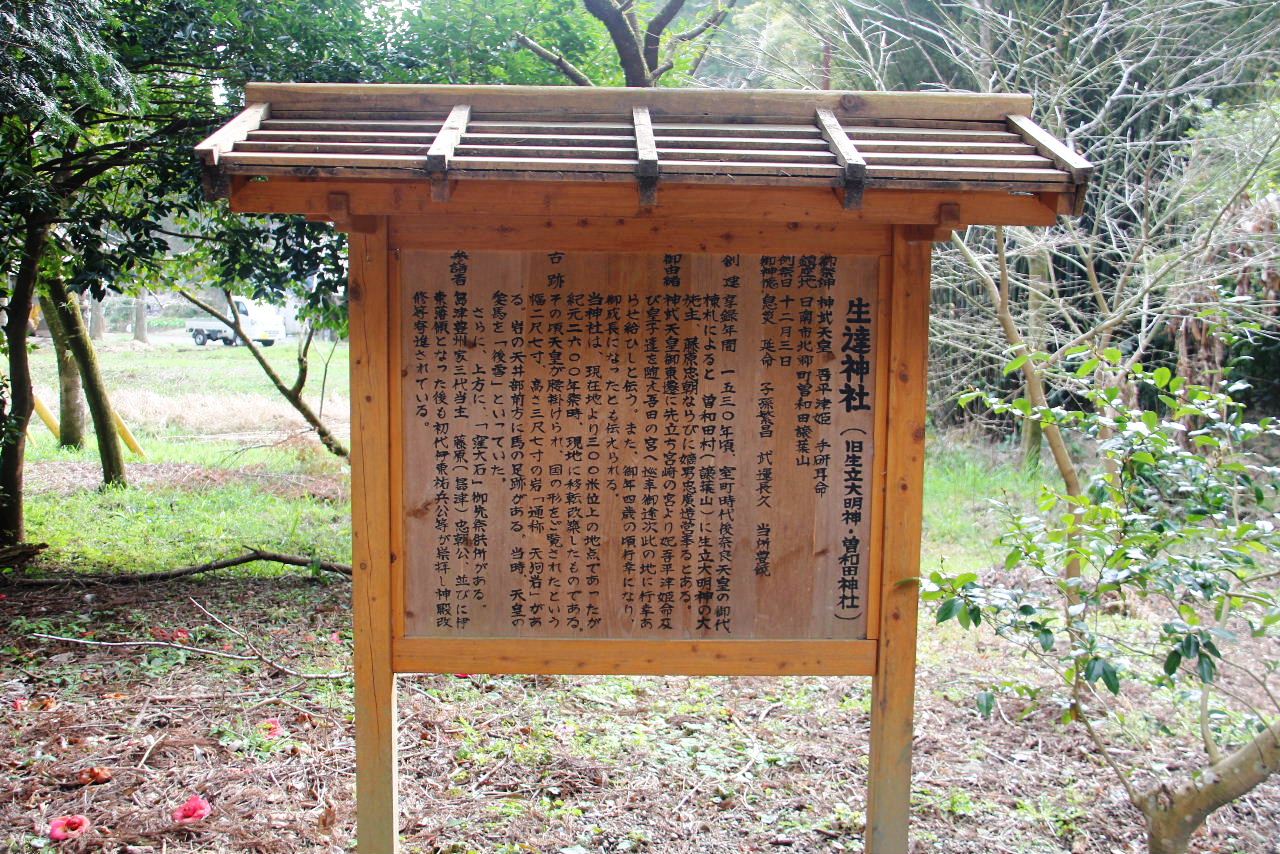 生達神社(旧生立大明神・曽和田神社)
御祭神 神武天皇 吾平津姫 手研耳命
鎮座地 日南市北郷町曽和田譲葉山
例祭日 十二月三日
御神徳 息災 延命 子孫繁昌 武運長久 当所豊饒
創建 享録年間 一五三〇年頃、室町時代後奈良天皇の御代
棟札によると 曽和田村(譲葉山)に生立大明神の大
施主、藤原忠朝ならびに嫡男忠廣造営奉るとある。
御由緒 神武天皇御東遷に先立ち宮崎の宮より妃吾平津姫命及
び皇子達を随え吾田の宮へ巡幸御途次此の地に行幸あ
らせ給ひしと伝う。また、御年四歳の頃行幸になり、
御成長になったとも伝えられる。
当神社は、現在地より三〇〇米位上の地点であったが
紀元二六〇〇年祭時、現地に移転改築したものである。
古跡 その頃天皇が腰掛けられ、国の形をご覧されたという
幅二尺七寸、高さ三尺七寸の岩「通称 天狗岩」があ
る。岩の天井部前方に馬の足跡がある。当時、天皇の
愛馬を「後雪」といっていた。
さらに、上方に、「窪大石」御先祭祀所がある。
参詣者 冨津豊州家三代当主 藤原(冨津)忠朝公、並びに伊
東藩領となった後も初代伊東祐兵公等が崇拝し神殿改
修等寄進されている。